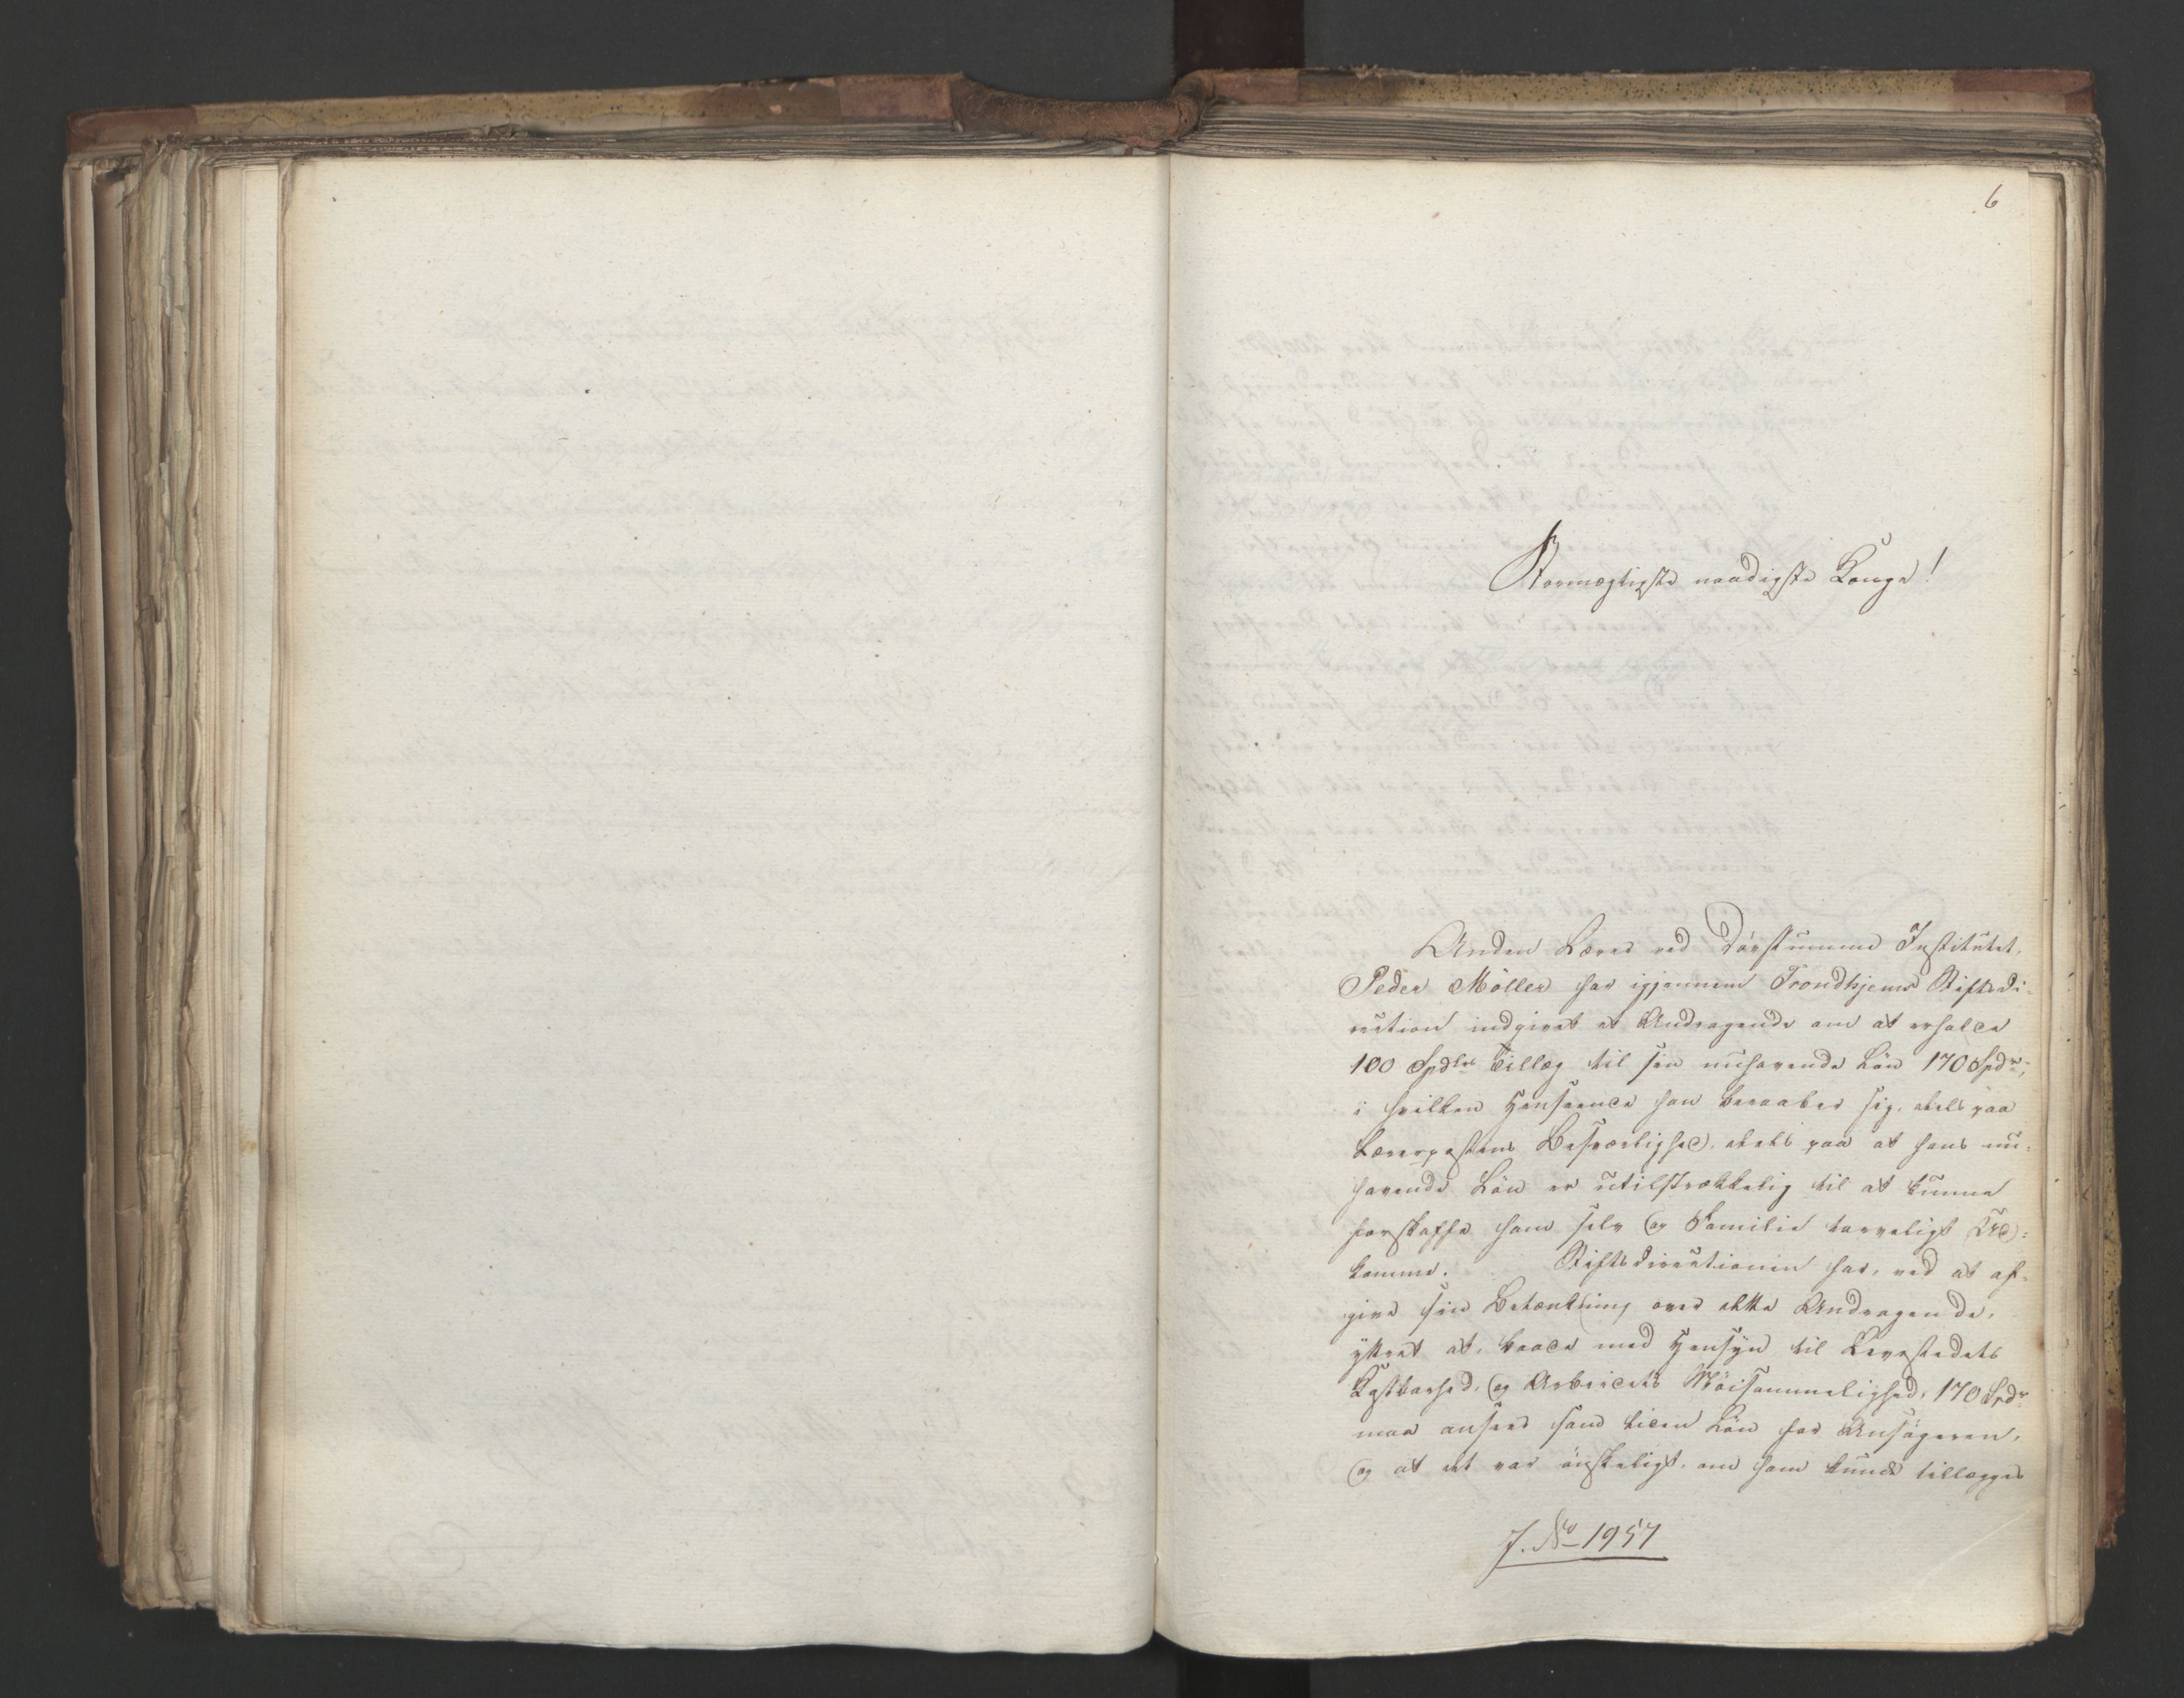 6
Stormægtigste naadigste Konge!
Anden Lærer ved Døvstumme Institutet,
Peder Möller har igjennem Trondhjems Stiftsdi-
rection indgivet et Andragende om at erholde
100 Spdlrs Tillæg til sin nuhavende Lön 170 Spdr,
i hvilken Henseende han beraaber sig, deels paa
Lærerpostens Besværlighed, deels paa at hans nu-
havende Lön er utilstrækkelig til at kunne
forskaffe ham selv og Familie tarveligt Ud-
komme. Stiftsdirectionen har, ved at af-
give sin Betænkning over dette Andragende,
yttret at, baade med Hensyn til Levestedets
Kostbarhed, og Arbeidets Möisommelighed, 170 Spdr
maa ansees som liden Lön for Ansögeren,
og at det var önskeligt, om ham kunde tillægges
J. No 1957